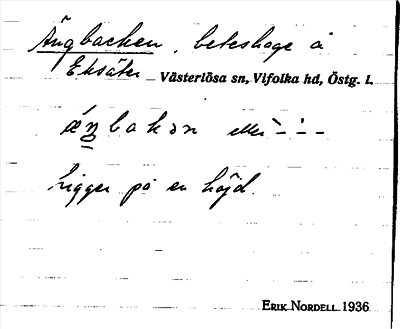 Ängbacken, beteshage å
Eksäter Västerlösa sn, Vifolka hd, Östg. l.
ǽŋbakən eller `-´-
ligger på en höjd.
ERIK NORDELL 1936